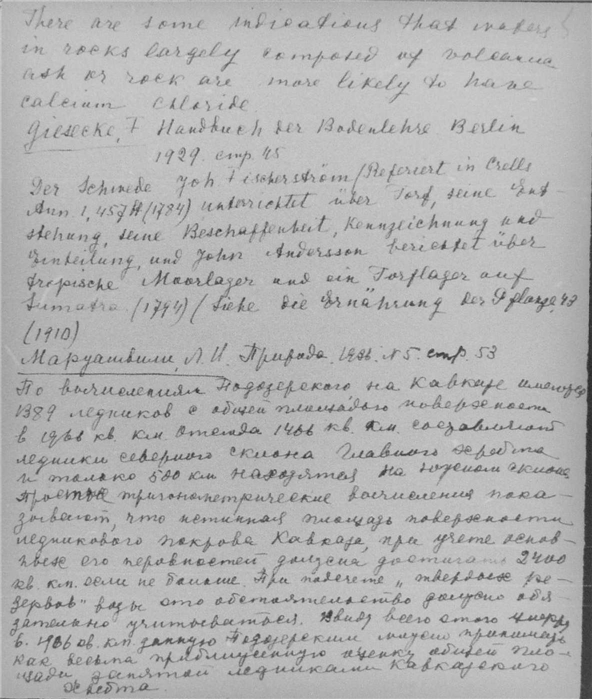 There are some indications that waters
in rocks largely composed of volcanic
ash or rock are more likely to have
calcium chloride.
Giesecke, F Handbuch der Bodenlehre Berlin
1929. стр. 45
Der Schwede Joh Fischerström (Referiert in Crells
Ann. 1, 457 (1784) unterrichtet über Torf, seine Ent-
stehung, seine Beschaffenheit, Kennzeichnung und
Einteilung, und John Andersson berichtet über
tropische Moorlager und ein Torflager auf
Sumatra (1794) (Siehe die Ernährung der Pflanze, 43
(1910)
Маруашвили, Л. И. Природа, 1936. N 5. стр. 53
По вычислениям Подозерского на Кавказе имелось
1389 ледников с общей площадью поверхности
в 1966 кв. км. Отсюда 1466 кв. км. составляют
ледники северного склона Главного хребта
и только 500 км находятся на южном склоне.
Простые тригонометрические вычисления пока-
зывают, что истинная площадь поверхности
ледникового покрова Кавказа, при учете основ-
ных его неровностей должна достигать 2400
кв. км. если не больше. При подсчете „твердых ре-
зервов" воды это обстоятельство должно обя-
зательно учитываться. Ввиду всего этого цифру
в 1966 кв. км. данную Подозерским можно принимать
как весьма приблизительную оценку общей пло-
щади, занятой ледниками Кавказского
хребта.